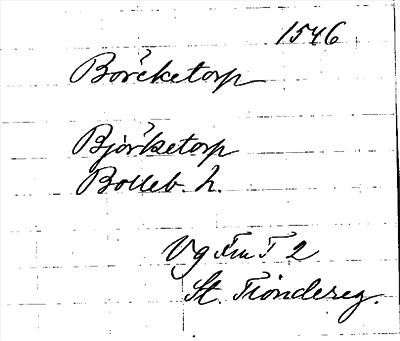 1546
Börcketorp
Björketorp
Bolleb. h.
Vg Fru T 2
St. Tiondereg.